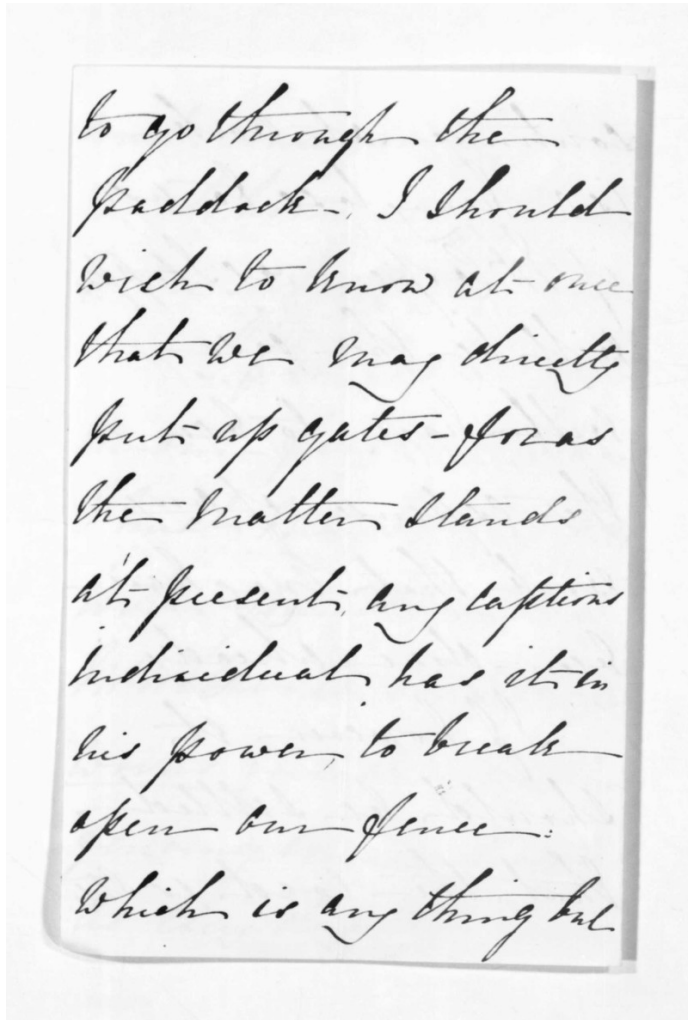 to go through the
paddock. I should
wish to know at once
that we may directly
put up gates - for as
the matter stands
at present, any captious
individual has it in
his power, to break
open our fence.
Which is any thing but